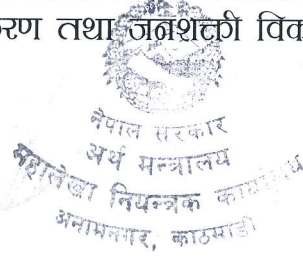 तथा जनशक्ती
नेपाल सरकार
अर्थ मन्त्रालय
महालेखा नियन्त्रक
अनामनगर, काठमाडौं